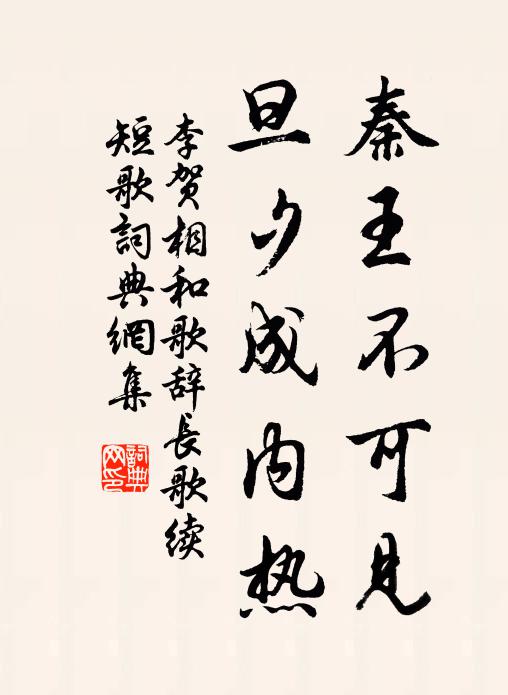 秦王不可见
旦夕成内热
李贺相和歌辞长歌续
短歌詞典網集
詞典
网印